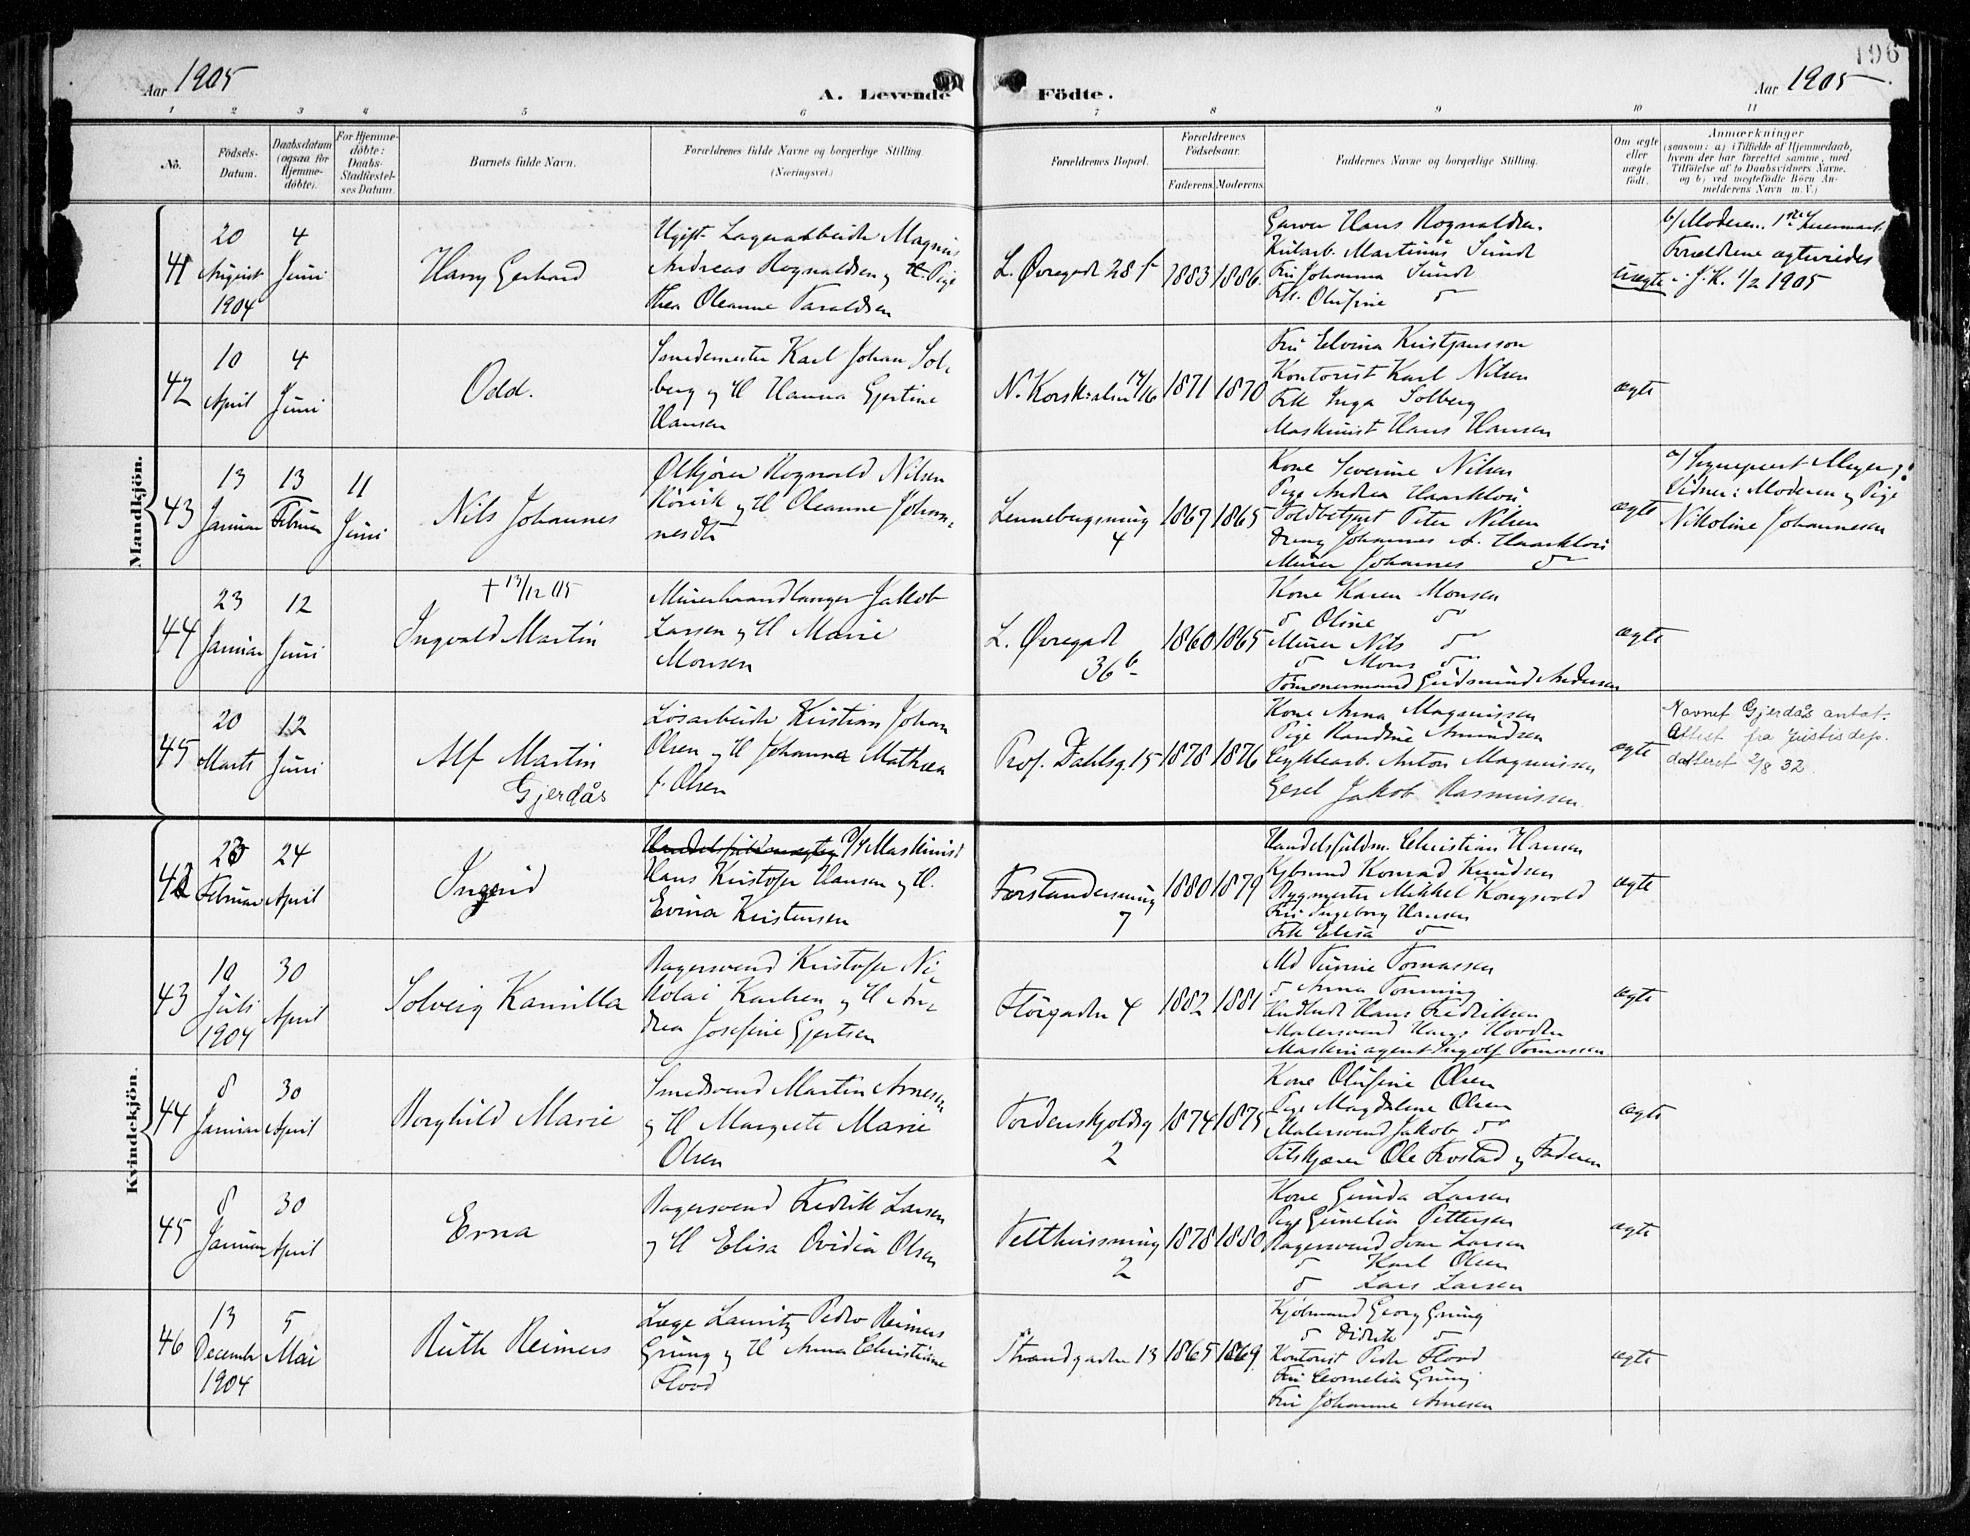 196
Aar 1905
A. Levende Födte.
Aar 1905
1 2 3 4 5 6 7 8 9 10 11
No.
Födsels-Datum.
Daabsdatum (ogsaa for Hjemmedöbte).
For Hjemmedöbte: Daabs-Stadfæstelses Datum.
Barnets fulde Navn.
Forældrenes fulde Navne og borgerlige Stilling. (Næringsvei.)
Forældrenes Bopæl.
Forældrenes Födselsaar.
Faderens. Moderens.
Faddernes Navne og borgerlige Stilling.
Om ægte eller uægte födt.
Anmærkninger
(saasom: a) i Tilfælde af Hjemmedaab, hvem der har forrettet samme, med Tilföielse af to Daabsvidners Navne, og b) ved uægtefödte Börn Anmelderens Navn m. V.)
Mandkjön.
41
20 August 1904
4 Juni
Harry Gerhard
Ugift Lagerarbeider Magnus
Andreas Rognaldsen og Pige
Thea Oleanne Taraldsen
L. Øvregade 28 f
1883
1886.
Garver Hans Rognaldsen.
Martinus Sundt
Fru Johanna Sundt
Frk. Olufine do
uægte
b/ Moderen.
Forældrene ægteviedes
i J. K. 1/2 1905
42
10 April
4 Juni
Odd.
Smedemester Karl Johan Sol-
berg og H Hanna Gjertine
Hansen
N. Korskalm 14/16
1871
1870
Fru Elvina Kristjansson
Kontorist Karl Nilsen
Frk Inga Solberg
Maskinist Hans Hansen
ægte
43
13 Januar
13 Februar
11 Juni
Nils Johannes
Ølkjører Rognald Nilsen
og H Oleanne Johan-
nesdtr
Lennebugsmug
4
1867
1865
Kone Severine Nilsen
Pige Andrea Haarklou
Toldbetjent Peter Nilsen
Dreng Johannes A. Haarklou
Murer Johannes do
ægte
a/ Meyer;
Vidner: Moderen og Pige
Nikoline Johannesen
44
23 Januar
12 Juni
† 13/12 05
Ingvald Martin
Murerhaandlanger Jakob
Larsen og H Marie
Monsen
L. Øvregade
36 b
1860
1865
Kone Karen Monsen
do Oline do
Murer Nils do
do Mons do
Tømmermand Gudmund Andersen
ægte
45
20 Marts
12 Juni
Alf Martin
Gjerdås
Løsarbeider Kristian Johan
Olsen og H Johanna Mathea
f. Olsen
Prof. Dahlsg. 15
1878
1876
Kone Anna Magnussen
Pige Randine Amundsen
Cyklearb. Anton Magnussen
Gesel Jakob Rasmussen
ægte
Navnet Gjerdås antat.
Attest fra Justisdep.
datteret 2/8 32.
Kvindekjön.
42
23 Februar
24 April
Ingrid
Handelsfuldmægtig Maskinist
Hans Kristofer Hansen og H.
Evina Kristensen
Forstandersmug
7
1880
1879
Handelsfuldm. Christian Hansen
Kjøbmand Konrad Knudsen
Bygmester Mikkel Kongsvold
Fru Ingeborg Hansen
Frk Elisa do
ægte
43
10 Juli 1904
30 April
Solveig Kamilla
Bagersvend Kristofer Ni-
kolai Karlsen og H An-
drea Josefine Gjertsen
Florgaden 4
1882
1881
Md Tomassen
do Anna Tonning
Hans Fredriksen
Malersvend Hans Hovden
Maskinagent Ingolf Tomassen
ægte
44
8 Januar
30 April
Borghild Marie
Smedsvend Martin Arnesen
og H Margrete Marie
Olsen
Tordenskjoldsg
2
1874
1875
Kone Olufine Olsen
Pige Magdalene Olsen
Malersvend Jakob do
Ole Frostad og Faderen
ægte
45
8 Januar
30 April
Erna
Bagersvend Fredrik Larsen
og H Elisa Ovidia Olsen
Telthussmug
2
1878
1880
Kone Gunda Larsen
Pige Gunelia Pettersen
Bagersvend Ivar Larsen
do Karl Olsen
do Lars Larsen
ægte
46
13 December 1904
5 Mai
Ruth Reimers
Læge Lauritz Pedro Reimers
Grung og H Anna Christiane
Flood
Strandgaden 13
1865
1869.
Kjøbmand Georg Grung
do Didrik do
Kontorist Peder Flood
Fru Cornelia Grung
Fru Johanne Arnesen
ægte